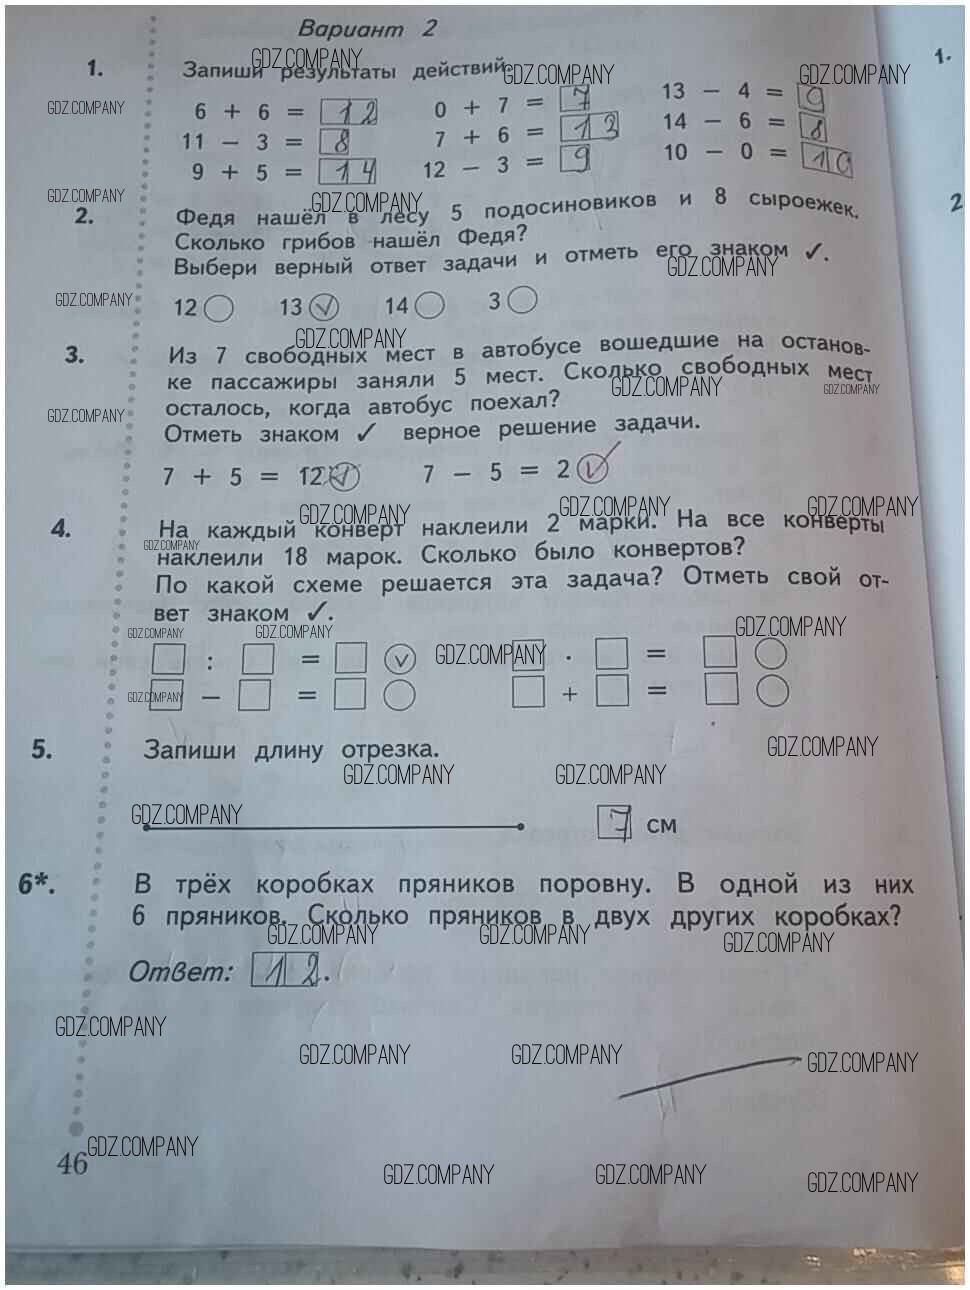 Вариант 2
1. Запиши результаты действий.
6 + 6 = 12 0 + 7 = 7 13 - 4 = 9
11 - 3 = 8 7 + 6 = 13 14 - 6 = 8
9 + 5 = 14 12 - 3 = 9 10 - 0 = 10
2. Федя нашёл в лесу 5 подосиновиков и 8 сыроежек.
Сколько грибов нашёл Федя?
Выбери верный ответ задачи и отметь его знаком ✓.
12 13 ✓ 14 3
3. Из 7 свободных мест в автобусе вошедшие на останов-
ке пассажиры заняли 5 мест. Сколько свободных мест
осталось, когда автобус поехал?
Отметь знаком ✓ верное решение задачи.
7 + 5 = 12 ✓ 7 - 5 = 2 ✓
4. На каждый конверт наклеили 2 марки. На все конверты
наклеили 18 марок. Сколько было конвертов?
По какой схеме решается эта задача? Отметь свой от-
вет знаком ✓.
□ : □ = □ ✓ □ · □ = □ ○
□ - □ = □ ○ □ + □ = □ ○
5. Запиши длину отрезка.
7 см
6*. В трёх коробках пряников поровну. В одной из них
6 пряников. Сколько пряников в двух других коробках?
Ответ: 12.
46
1.
2
GDZ.COMPANY